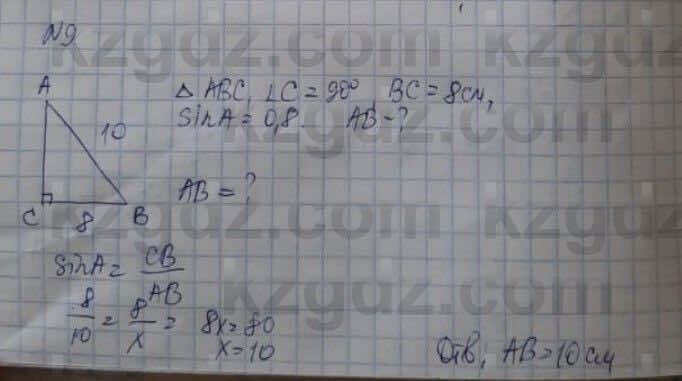 N9
A
△ ABC, ∠C = 90° BC = 8см,
sinA = 0,8 AB - ?
10
AB = ?
C 8 B
sinA = CB/AB
8/10 = 8/x = 8x = 80
x = 10
Отв, AB = 10 см
kzgdz.com
kzgdz.com
kzgdz.com
kzgdz.com